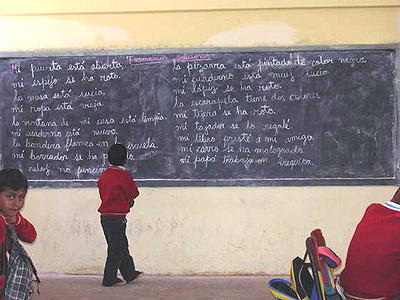 Formamos oraciones
Mi puerta está abierta.
mi espejo se ha roto.
la mesa está sucia.
mi ropa está vieja.
la ventana de mi casa está limpia.
mi cuaderno está nuevo.
la bandera flamea en escuela.
mi borrador se ha
reloj no
la pizarra está pintado de color negra
mi cuaderno está muy sucio
mi lápiz se ha roto.
la escarapela tiene dos colores
mi tijera se ha roto.
mi tajador se lo regalé.
mi libro presté a mi amigo.
mi carro se ha malogrado.
mi papá trabaja en